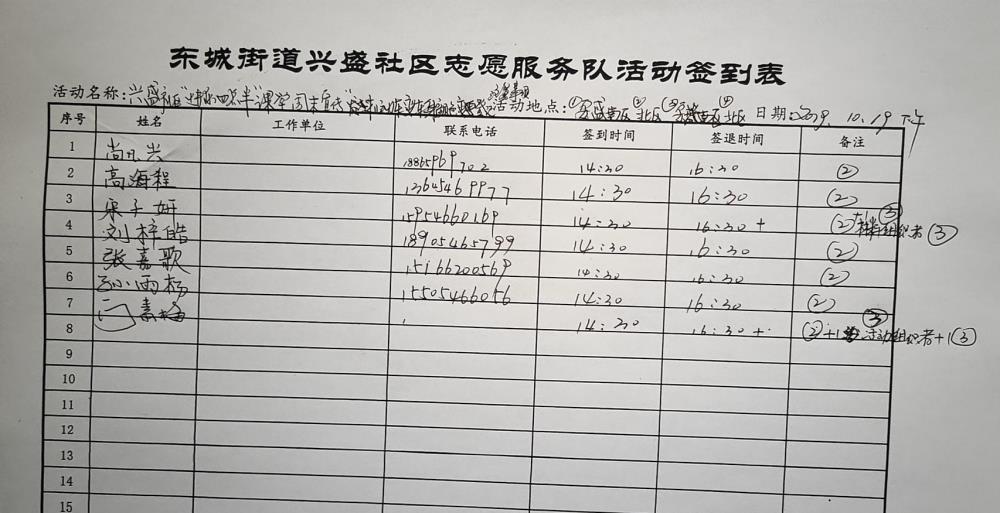 东城街道兴盛社区志愿服务队活动签到表
活动名称:兴盛社区 活动地点:①兴盛南区②北区③ 南区④北区 日期: 10.19下午
序号 姓名 工作单位 联系电话 签到时间 签退时间 备注
1 尚凡兴 18865969702 14:30 16:30 ②
2 高海程 13645469977 14:30 16:30 ②
3 宋子妍 15954660169 14:30 16:30+ ②+1 组织者③
4 刘梓皓 18905465799 14:30 16:30 ②
5 张嘉歌 15166200569 14:30 16:30 ②
6 孙雨杨 15505466056 14:30 16:30 ②
7 闫素梅 14:30 16:30+ ②+1 活动组织者+1③
8
9
10
11
12
13
14
15